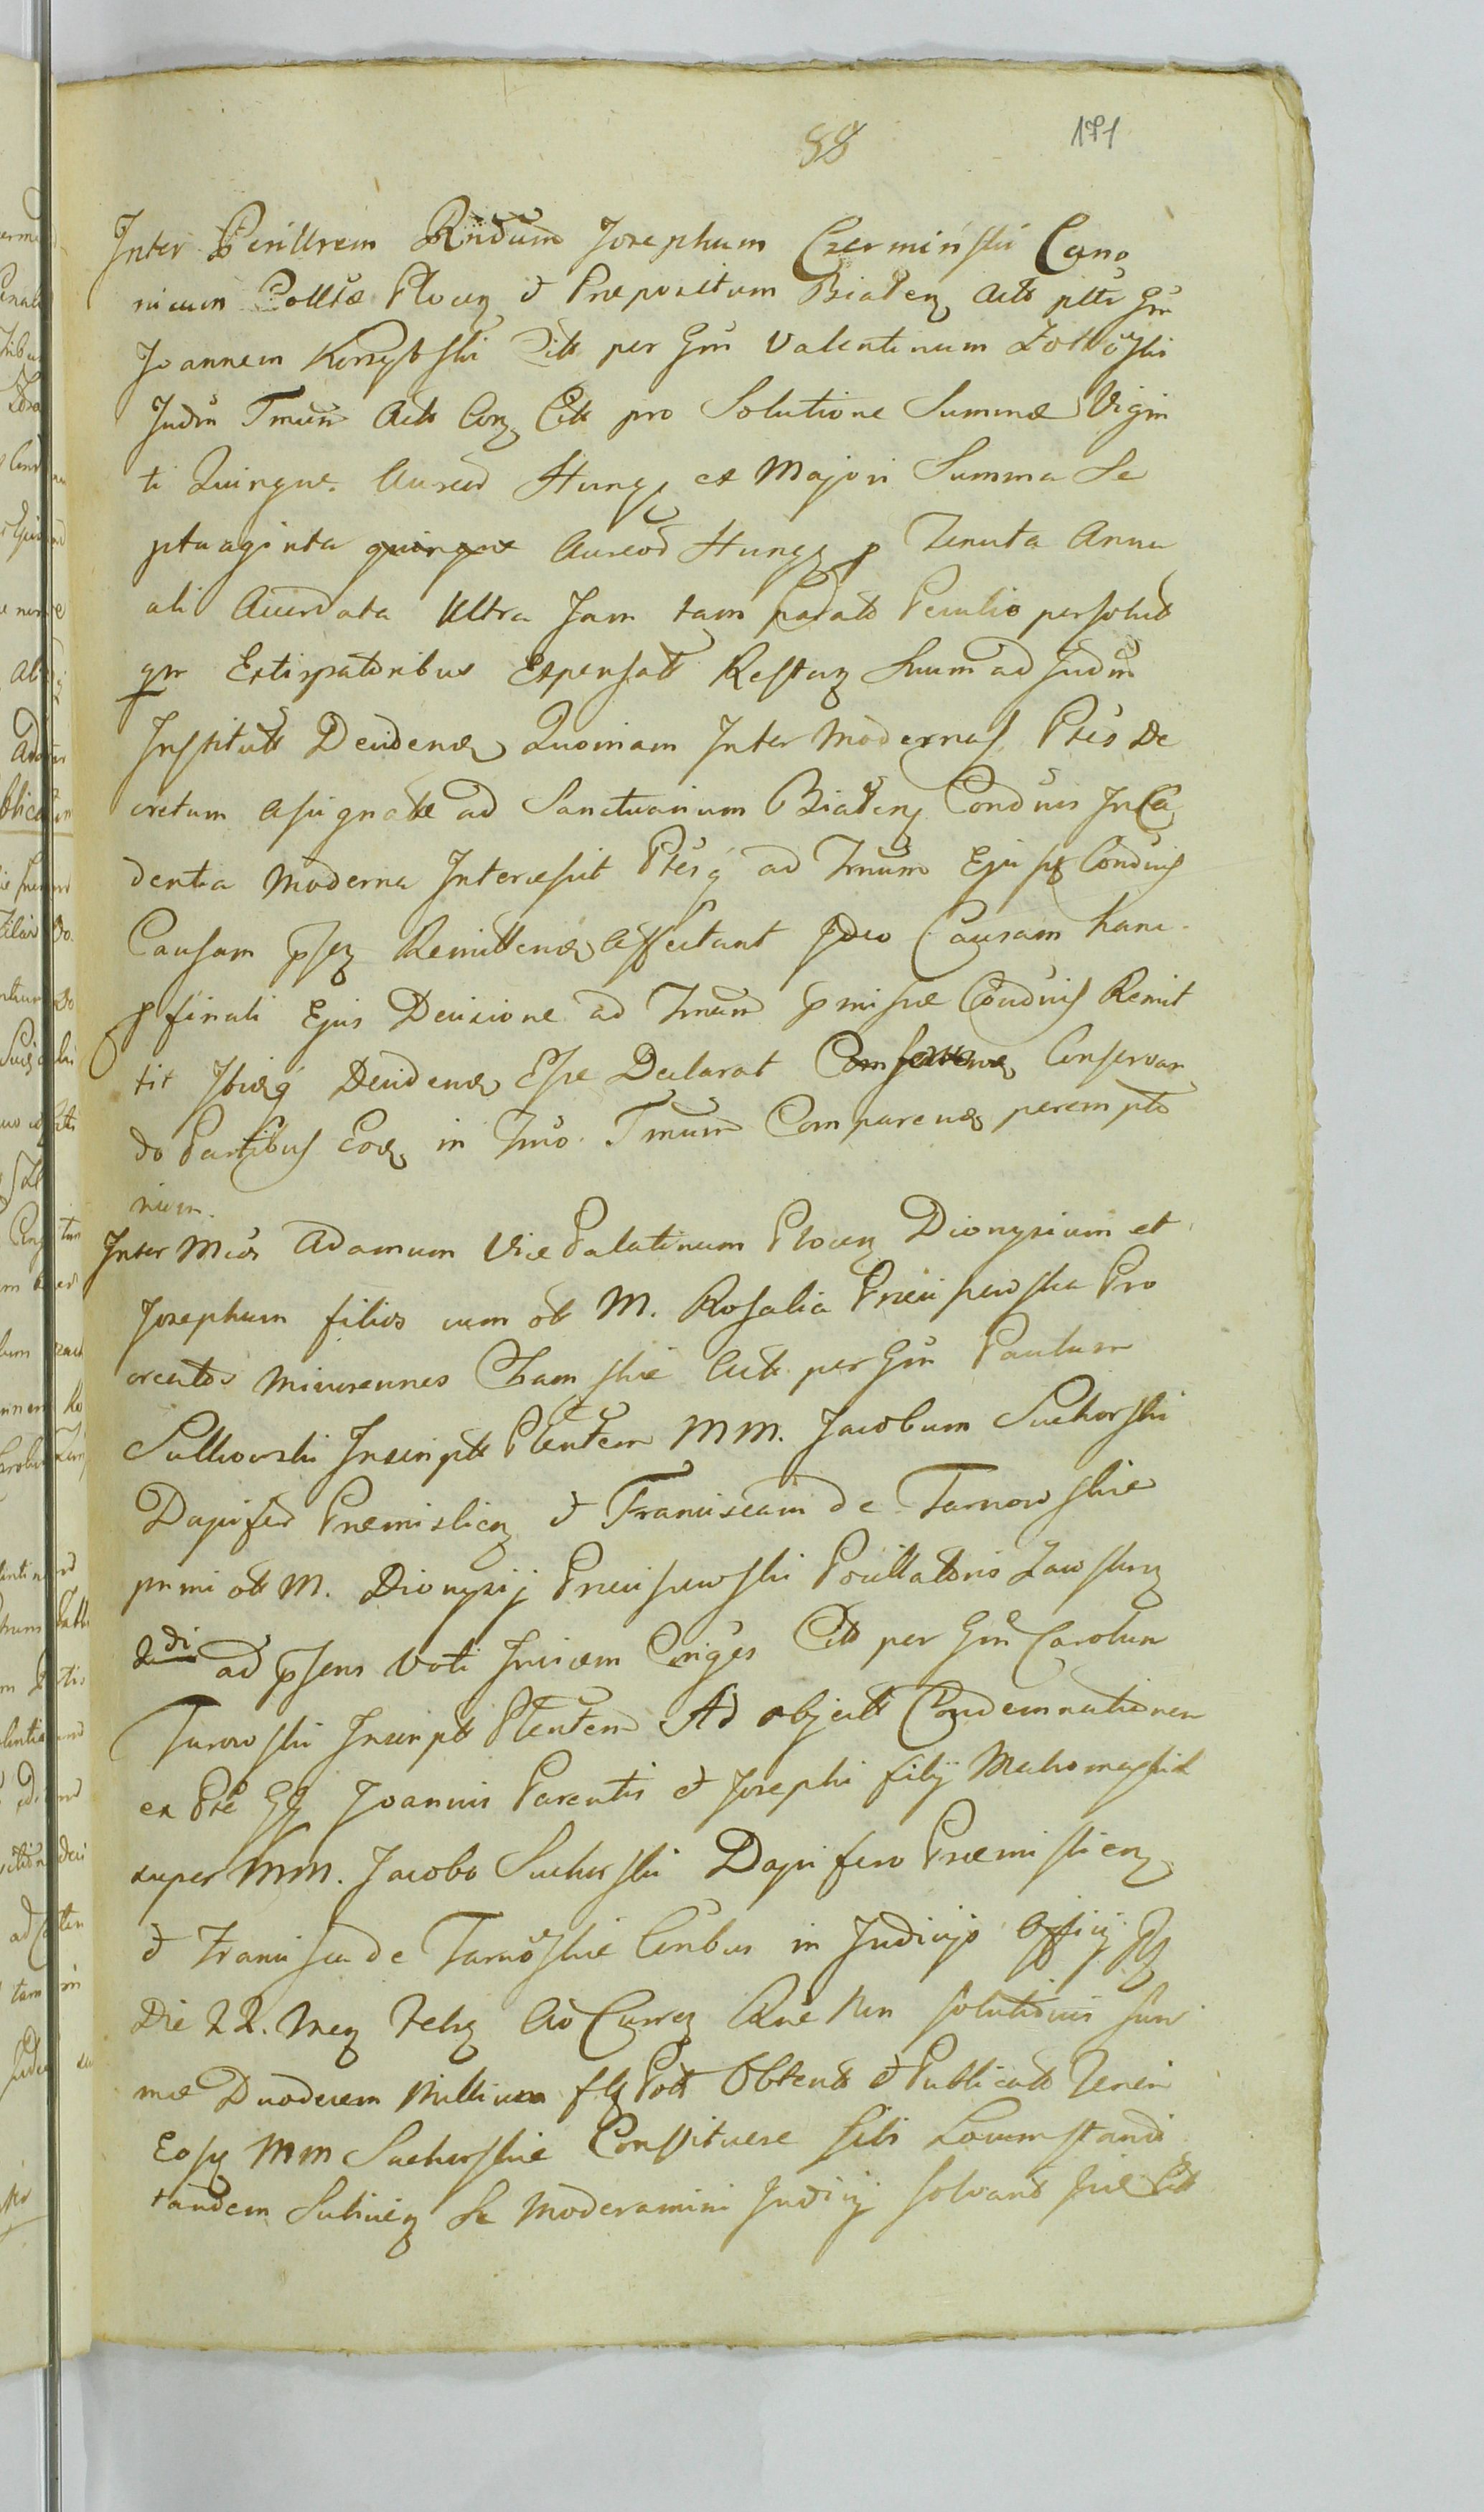 88 171
Inter Perillrem Rndum Josephum Czerminski Cano
nicum Colltæ Plocen et Præpositum Bialen Actt pltr Gm
Joannem Korzybski Citt per Gm Valentinum Zołtoski
Judm Tmum Actt Con Citt pro Solutione Summæ Vigin
ti Quinque Aureor Hung ex Majori Summa Se
ptuaginta quinque Aureor Hung p Tenuta Annu
ali Accordata Ultra Jam tam parato Peculio persolutt
qm Extirpatoribus Expensatt Restan Suum ad Judm
Institutt Decidend Quoniam Inter Modernas Ptes De
cretum Assignatæ ad Sanctuarium Bialen Condnis In Ca
dentia Moderna Intercessit Ptesq ad Tmum Ejusd Condnis
Causam psen Remittend Affectant Ideo Causam hanc
p finali Ejus Decisione ad Tmum pmissæ Condnis Remit
tit Ibidq Decidend Esse Declarat Conservar
do Partibus Eod in Tmo Tmum Comparend perempto
rium.
Inter Mcos Adamum Vice Palatinum Plocen Dionysium et
Josephum filios cum ol M. Rosalia Pruiszewska Pro
creatos Minorennes Chamskie Actt per Gm Paulum
Sulkowski Inscriptt Pltentem MM. Jacobum Suchorski
Dapifer Præmislien et Franciscam de Tarnowskie
primi ol M. Dionysij Pruiszewski Pocillatoris Zawskren
2di ad psens Voti Invicem Conjges Citt per Gm Carolum
Turowski Inscriptt Pltentem Ad objectt Condemnationem
ex Pte GG Joannis Parentis et Josephi filij
super MM. Jacobo Suchorski Dapifero Præmislien
et Francisca de Tarnoskie Conbus in Judicijs
Die 22. Men Ao Curren Rne Non solutionis Sum
mæ Duodecem Millium fl Poll Obtentt et Publicatt Venien
Eosd MM Suchorskie Constituere sibi Locum standi
tandem Subijcien Se Moderamini Judicij